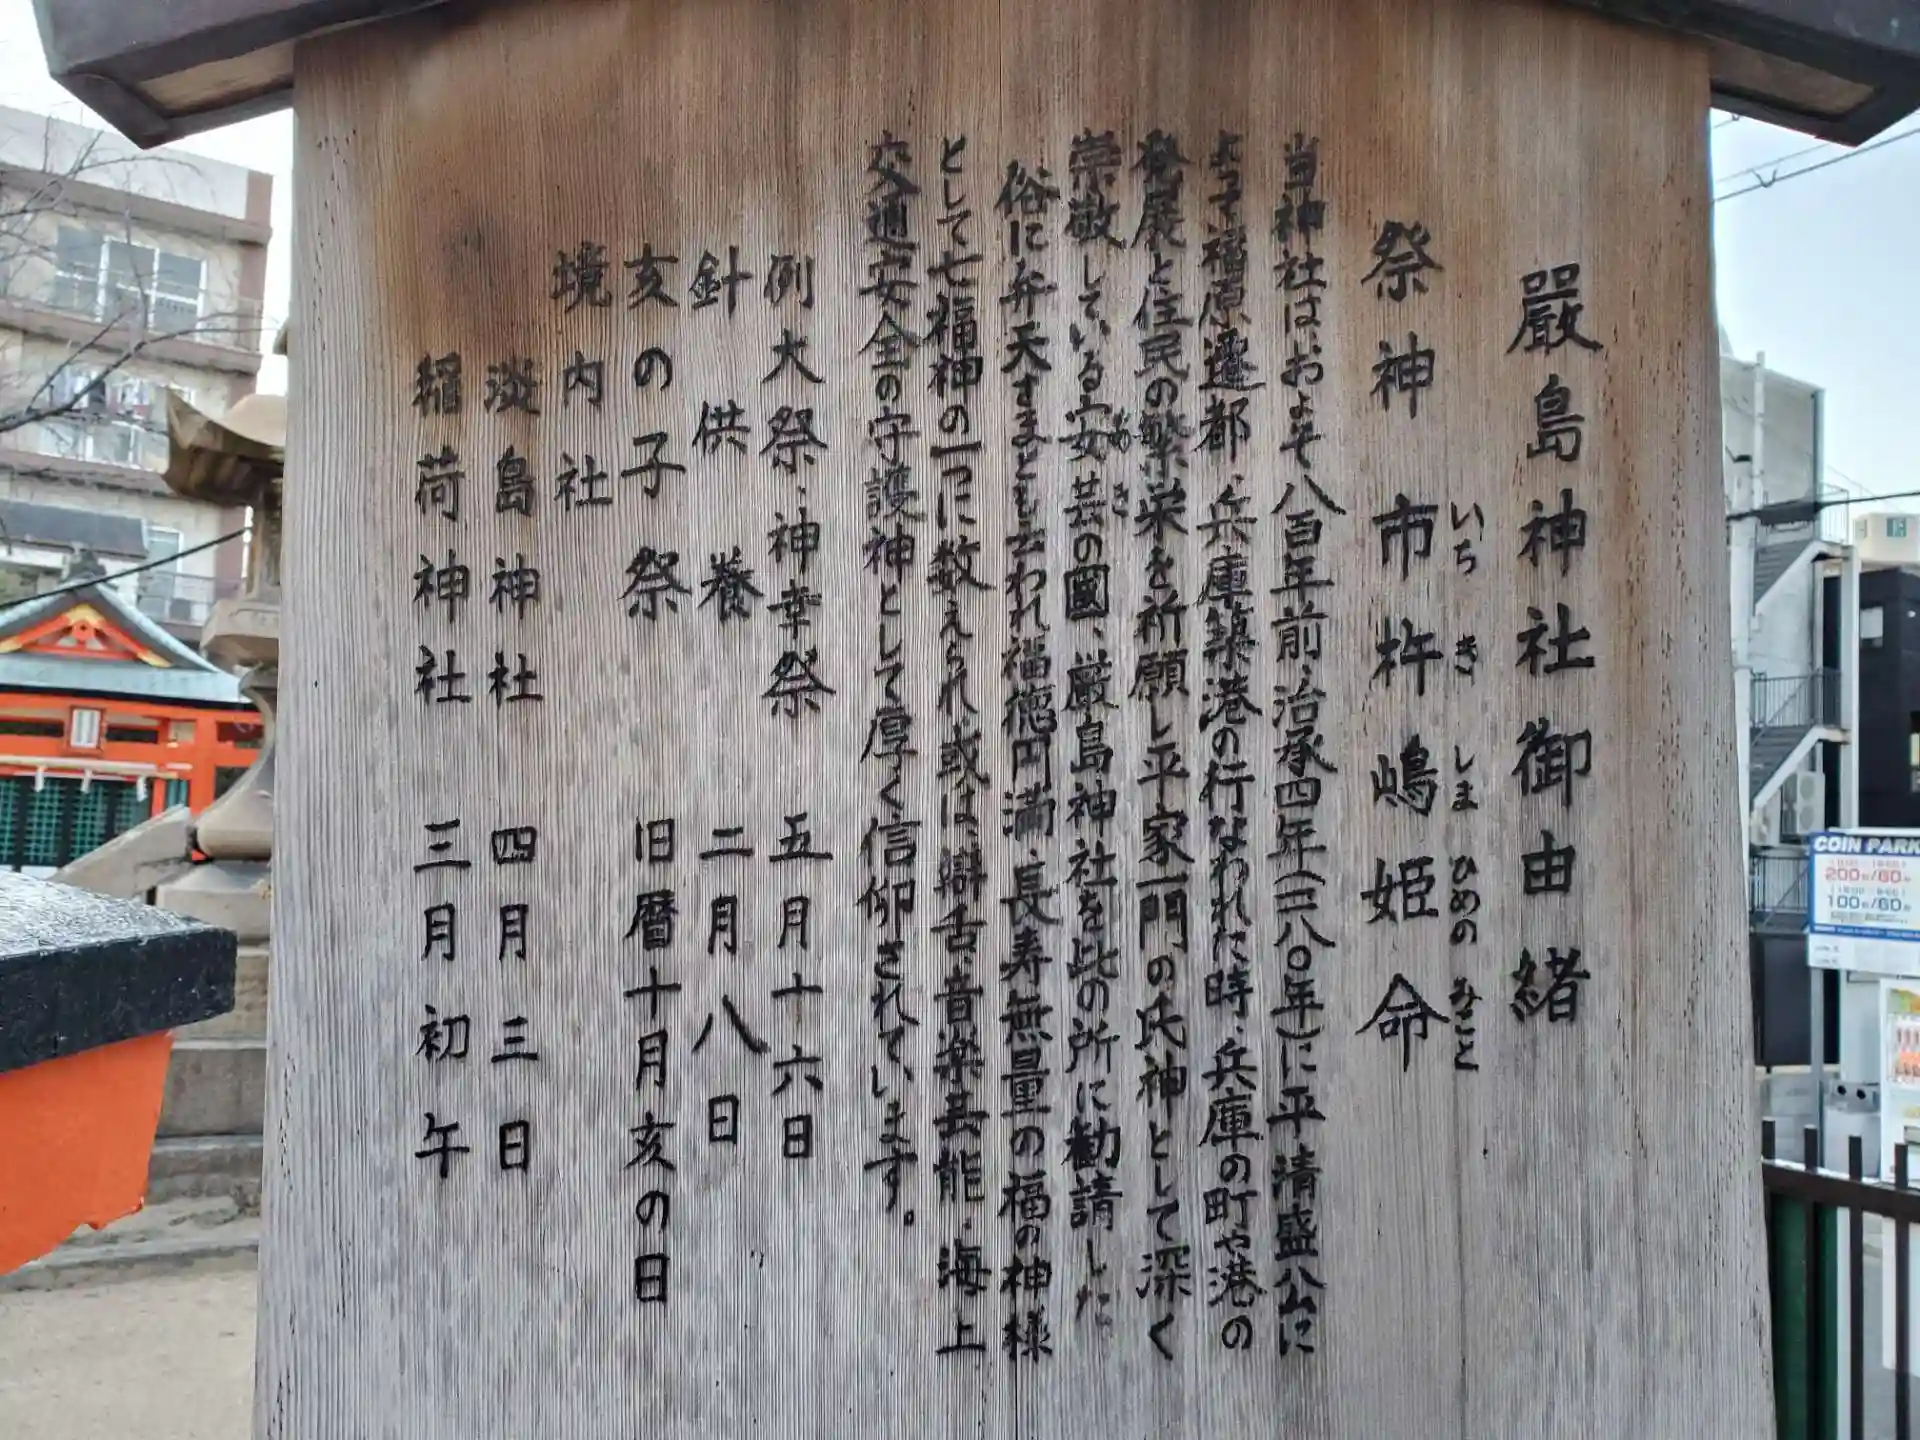 厳島神社御由緒
祭神 市杵嶋姫命
いち き しま ひめの みこと
当神社は、およそ八百年前、治承四年(一一八〇年)に平清盛公に
よって福原遷都、兵庫築港の行なわれた時、兵庫の町や港の
発展と住民の繁栄を祈願し平家一門の氏神として深く
崇敬している安芸の國、厳島神社を此の所に勧請した
あ き
俗に弁天すまとも云われ福徳円満、長寿無量の福の神様
として七福神の一つに数えられ或は、辯舌、音楽、芸能、海上
交通安全の守護神として厚く信仰されています。
例大祭、神幸祭 五月十六日
針供養 二月八日
亥の子祭 旧暦十月亥の日
境内社
淡島神社 四月三日
稲荷神社 三月初午
COIN PARK
200 /60
100 /60